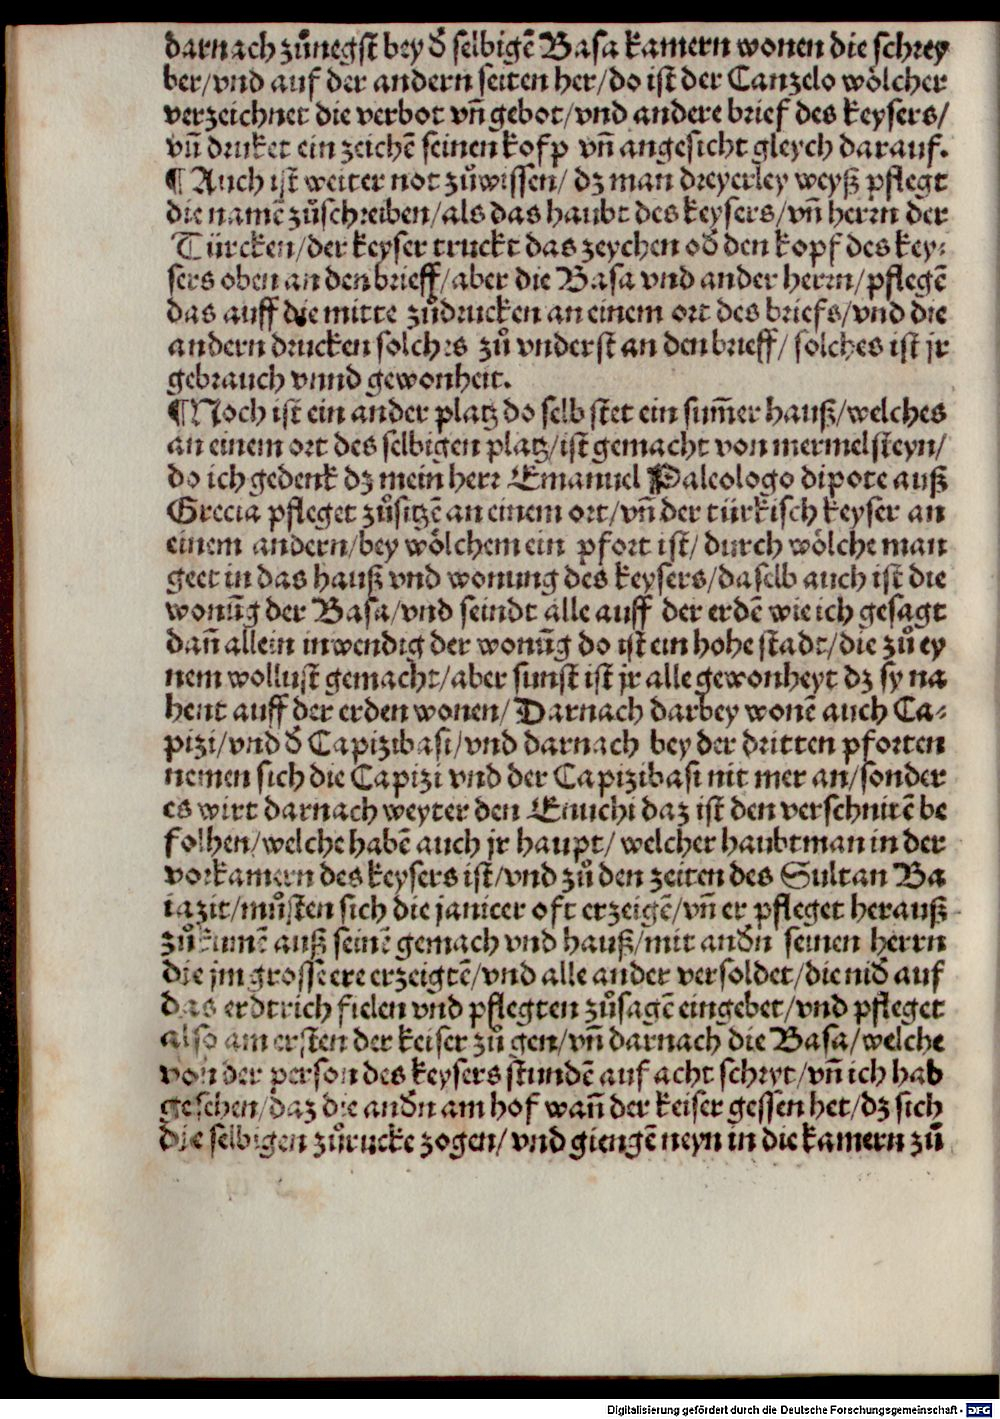 darnach zůnegst bey d̃ selbigẽ Basa kamern wonen die schrey
ber/vnd auf der andern seiten her/do ist der Canzelo wölcher
verzeichnet die verbot vñ gebot/vnd andere brief des keysers/
vñ druket ein zeichẽ seinen kofp vñ angesicht gleych darauf.
¶ Auch ist weiter not zůwissen/ dz man dreyerley weyß pflegt
die namẽ zůschreiben/als das haubt des keysers/vñ herrn der
Türcken/der keyser truckt das zeychen od̃ den kopf des key⸗
sers oben an den brieff/aber die Basa vnd ander herrn/pflegẽ
das auff die mitte zůdrucken an einem ort des briefs/vnd die
andern drucken solchrs zů vnderst an den brieff/ solches ist jr
gebrauch vnnd gewonheit.
¶Noch ist ein ander platz do selb stet ein sum̃er hauß/welches
an einem ort des selbigen platz/ist gemacht von mermelsteyn/
do ich gedenk dz mein herr Emanuel Paleologo dipote auß
Grecia pfleget zůsitzẽ an einem ort/vñ der türkisch keyser an
einem andern/bey wölchem ein pfort ist/ durch wölche man
geet in das hauß vnd wonung des keysers/daselb auch ist die
wonũg der Basa/vnd seindt alle auff der erdẽ wie ich gesagt
dañ allein inwendig der wonũg do ist ein hohe stadt/die zů ey
nem wollust gemacht/aber sunst ist jr alle gewonheyt dz sy na
hent auff der erden wonen/ Darnach darbey wonẽ auch Ca⸗
pizi/vnd d̃ Capizibasi/vnd darnach bey der dritten pforten
nemen sich die Capizi vnd der Capizibasi nit mer an/sonder
es wirt darnach weyter den Enuchi daz ist den verschnitẽ be
folhen/welche habẽ auch jr haupt/ welcher haubtman in der
vorkamern des keysers ist/vnd zů den zeiten des Sultan Ba
iazit/můsten sich die janicer oft erzeigẽ/vñ er pfleget herauß
zůkumẽ auß seinẽ gemach vnd hauß/mit and̃n seinen herrn
die jm grosse ere erzeigtẽ/vnd alle ander versoldet/die nid̃ auf
das erdtrich fielen vnd pflegten zůsagẽ ein gebet/vnd pfleget
also am ersten der keiser zů gen/vñ darnach die Basa/welche
von der person des keysers stundẽ auf acht schryt/vñ ich hab
gesehen/daz die and̃n am hof wañ der keiser gessen het/dz sich
die selbigen zůrucke zogen/ vnd giengẽ neyn in die kamern zů
Digitalisierung gefördert durch die Deutsche Forschungsgemeinschaft - DFG